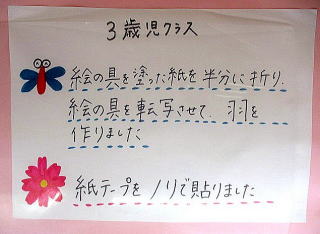 3歳児クラス
絵の具を塗った紙を半分に折り、
絵の具を転写させて、羽を
作りました
紙テープをノリで貼りました